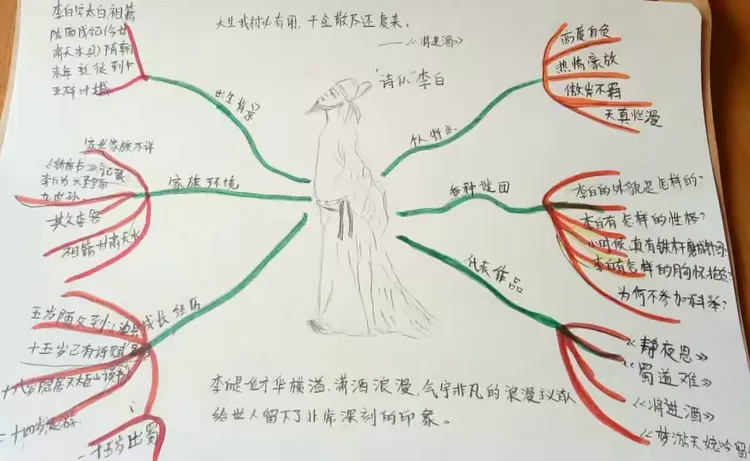 天生我材必有用，千金散尽还复来。
——《将进酒》
"诗仙"李白
出生背景
李白字太白，祖籍
陇西成纪（今甘
肃天水县）隋朝
末年迁徙到中
家族环境
家世家族不详
《新唐书》记载
李白为
九世孙
其父李客
祖籍甘肃天水
成长经历
五岁随父到
十五岁已有诗赋
十八岁隐居大匡山读书
二十四岁
二十五岁出蜀
个人特点
高度自负
热情豪放
傲岸不羁
天真烂漫
各种谜团
李白的体貌是怎样的？
李白有怎样的性格？
小时候真有铁杵磨成针
李白有怎样的胸怀抱负
为何不参加科举？
代表作品
《静夜思》
《蜀道难》
《将进酒》
《梦游天姥吟留
李白是才华横溢，潇洒浪漫，气宇非凡的浪漫主义诗人
给世人留下了非常深刻的印象。